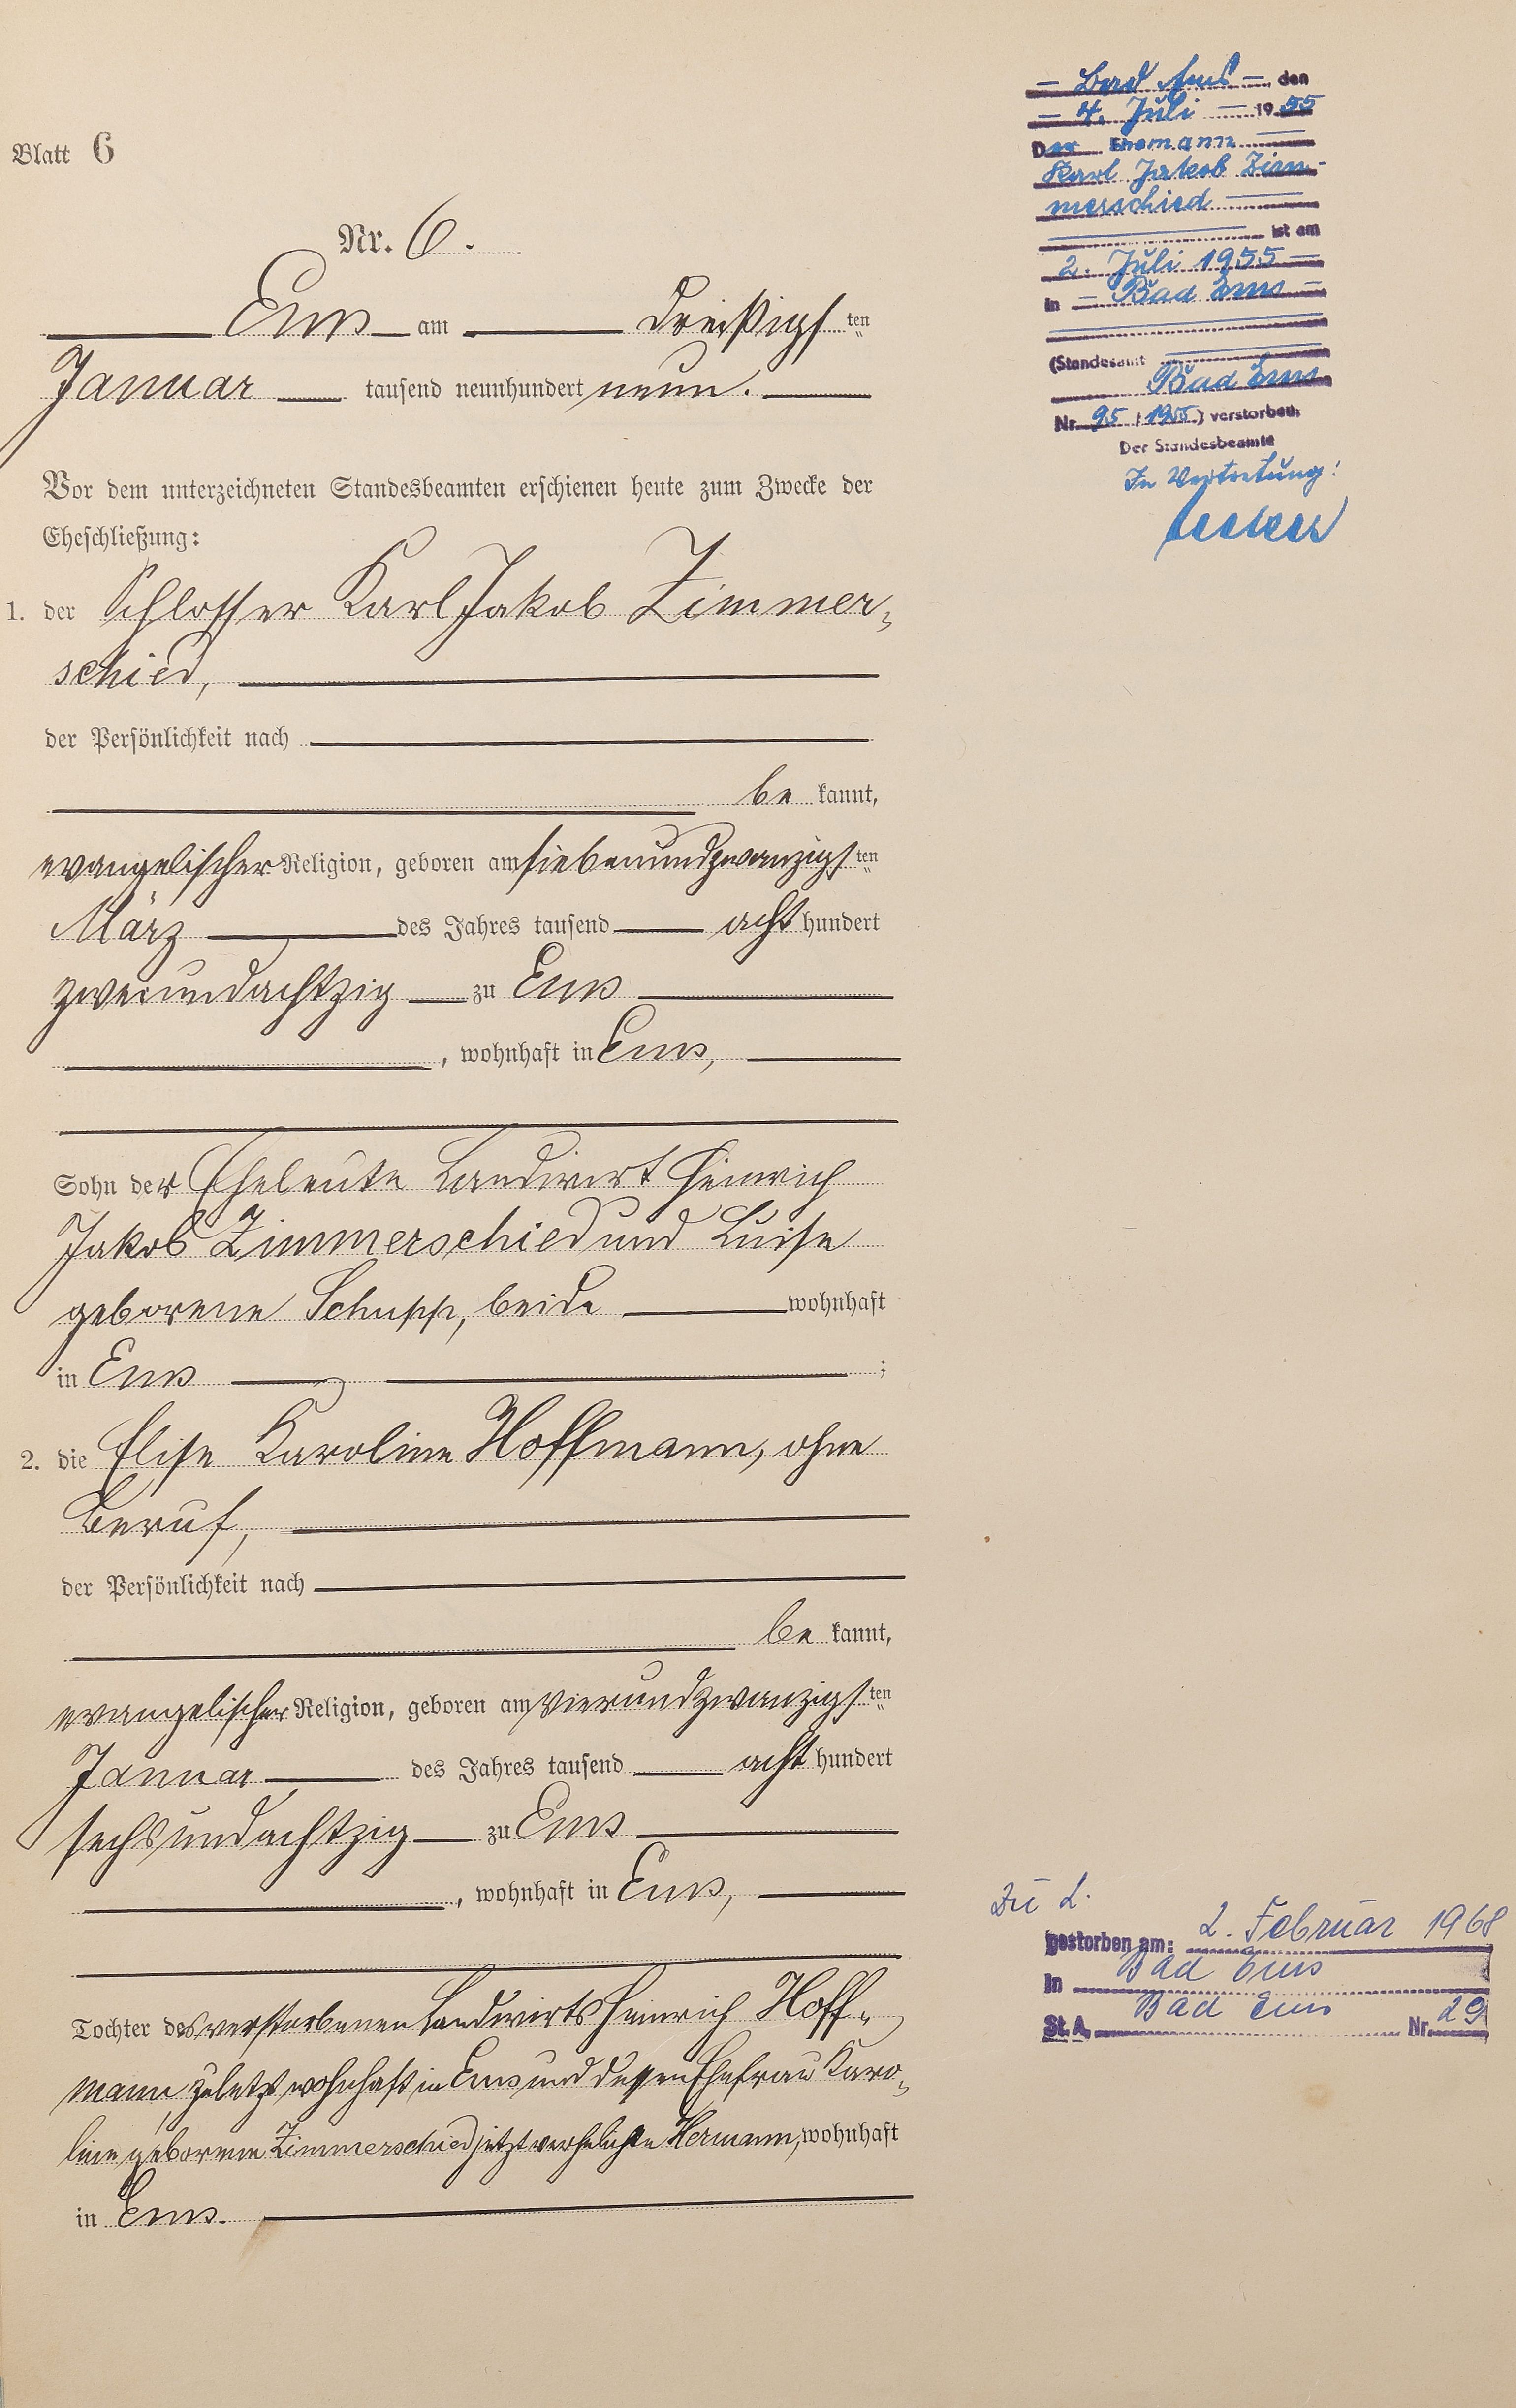 Blatt 6
Nr. 6.
Ems am dreißigsten
Januar tausend neunhundert neun.
Vor dem unterzeichneten Standesbeamten erschienen heute zum Zwecke der
Eheschließung:
1. der Schlosser Karl Jakob Zimmer-
schied,
der Persönlichkeit nach
be kannt,
evangelischer Religion, geboren am siebenundzwanzigsten
März des Jahres tausend acht hundert
zweiundachtzig zu Ems
, wohnhaft in Ems,
Sohn der Eheleute Landwirt Heinrich
Jakob Zimmerschied und Luise
geborene Schupp, beide wohnhaft
in Ems ;
2. die Elise Karoline Hoffmann, ohne
Beruf,
der Persönlichkeit nach
be kannt,
evangelischer Religion, geboren am vierundzwanzigsten
Januar des Jahres tausend acht hundert
sechsundachtzig zu Ems
, wohnhaft in Ems,
Tochter des verstorbenen Landwirts Heinrich Hoff-
mann, zuletzt wohnhaft in Ems und dessen Ehefrau Karo-
line geborene Zimmerschied jetzt verehelichte Hermann, wohnhaft
in Ems.
– Bad Ems –, den
– 4. Juli – 19 55
Der Ehemann
Karl Jakob Zim-
merschied
ist am
2. Juli 1955 –
in – Bad Ems –
(Standesamt
Bad Ems
Nr. 95 / 1955) verstorben.
Der Standesbeamte
In Vertretung!
Zu 2.
gestorben am: 2. Februar 1968
in Bad Ems
St. A. Bad Ems Nr. 29